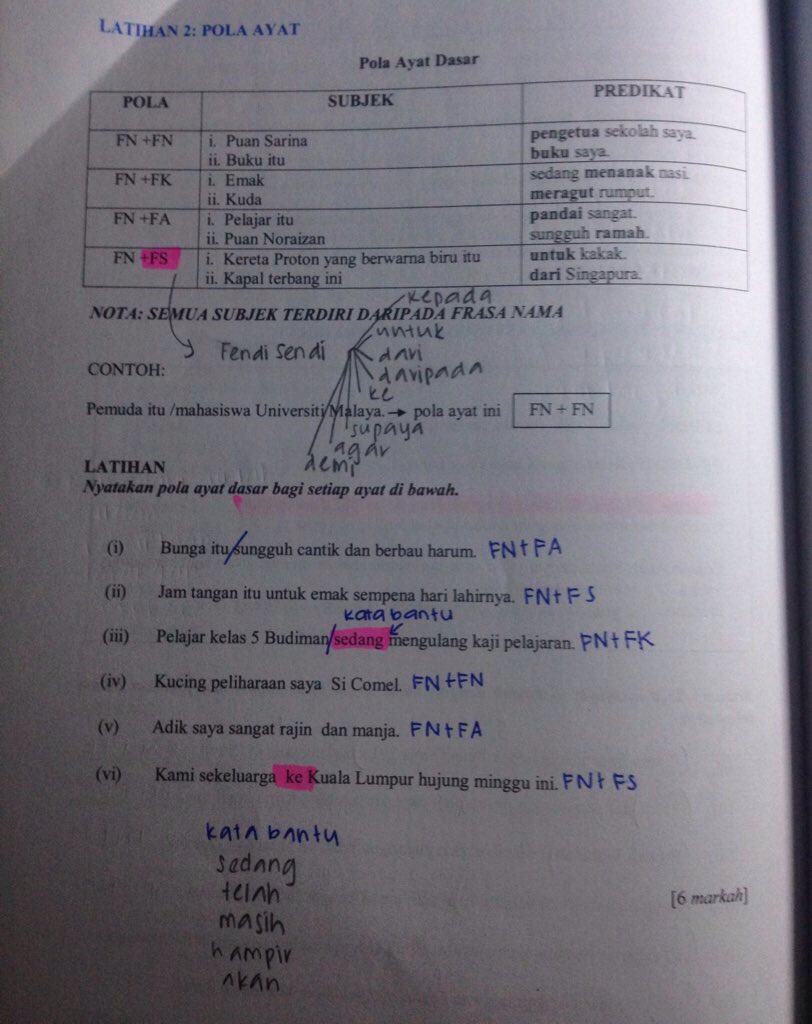 LATIHAN 2: POLA AYAT
Pola Ayat Dasar
POLA SUBJEK PREDIKAT
FN +FN i. Puan Sarina pengetua sekolah saya.
ii. Buku itu buku saya.
FN +FK i. Emak sedang menanak nasi.
ii. Kuda meragut rumput.
FN +FA i. Pelajar itu pandai sangat.
ii. Puan Noraizan sungguh ramah.
FN +FS i. Kereta Proton yang berwarna biru itu untuk kakak.
ii. Kapal terbang ini dari Singapura.
kepada
NOTA: SEMUA SUBJEK TERDIRI DARIPADA FRASA NAMA
untuk
Fendi Sendi
dari
daripada
CONTOH:
ke
Pemuda itu /mahasiswa Universiti Malaya. → pola ayat ini FN + FN
supaya
agar
demi
LATIHAN
Nyatakan pola ayat dasar bagi setiap ayat di bawah.
(i) Bunga itu/sungguh cantik dan berbau harum. FN+FA
(ii) Jam tangan itu untuk emak sempena hari lahirnya. FN+FS
kata bantu
(iii) Pelajar kelas 5 Budiman/sedang mengulang kaji pelajaran. FN+FK
(iv) Kucing peliharaan saya Si Comel. FN+FN
(v) Adik saya sangat rajin dan manja. FN+FA
(vi) Kami sekeluarga ke Kuala Lumpur hujung minggu ini. FN+FS
kata bantu
sedang
telah
masih
hampir
akan
[6 markah]